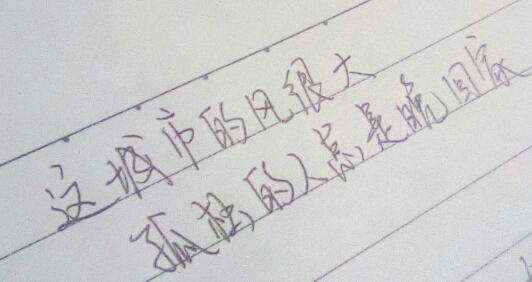 这城市的风很大
孤独的人总是晚回家